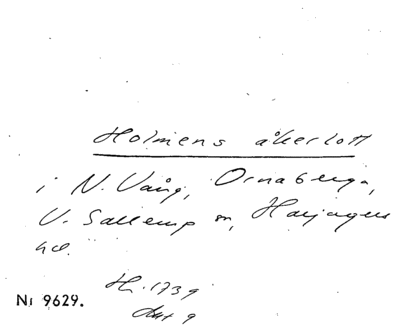 Holmens åkerlott
i N. Vång, Ornaberga,
V. Sallerup m, Harjagers
hd.
H. 1739
Akt 9
Nr 9629.